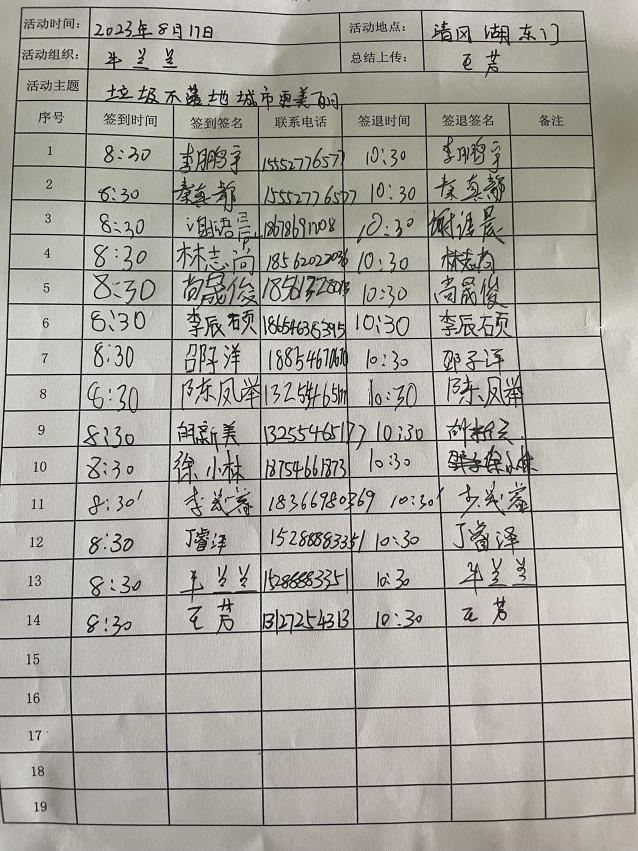 活动时间: 2023年8月17日 活动地点: 清风湖东门
活动组织: 牟兰兰 总结上传: 王芳
活动主题 垃圾不落地城市更美丽
序号 签到时间 签到签名 联系电话 签退时间 签退签名 备注
1 8:30 李鹏宇 15552776577 10:30 李鹏宇
2 8:30 秦真静 15552776577 10:30 秦真静
3 8:30 谢语晨 18678691708 10:30 谢语晨
4 8:30 林志尚 18562022036 10:30 林志尚
5 8:30 尚晟俊 10:30 尚晟俊
6 8:30 李辰硕 18654638395 10:30 李辰硕
7 8:30 邵子洋 10:30 邵子洋
8 8:30 陈凤举 10:30 陈凤举
9 8:30 新美 13255465177 10:30
10 8:30 徐小林 18754661873 10:30 徐小林
11 8:30 18366780369 10:30
12 8:30 丁睿泽 15288883351 10:30 丁睿泽
13 8:30 牟兰兰 15288883351 10:30 牟兰兰
14 8:30 王芳 13127254313 10:30 王芳
15
16
17
18
19